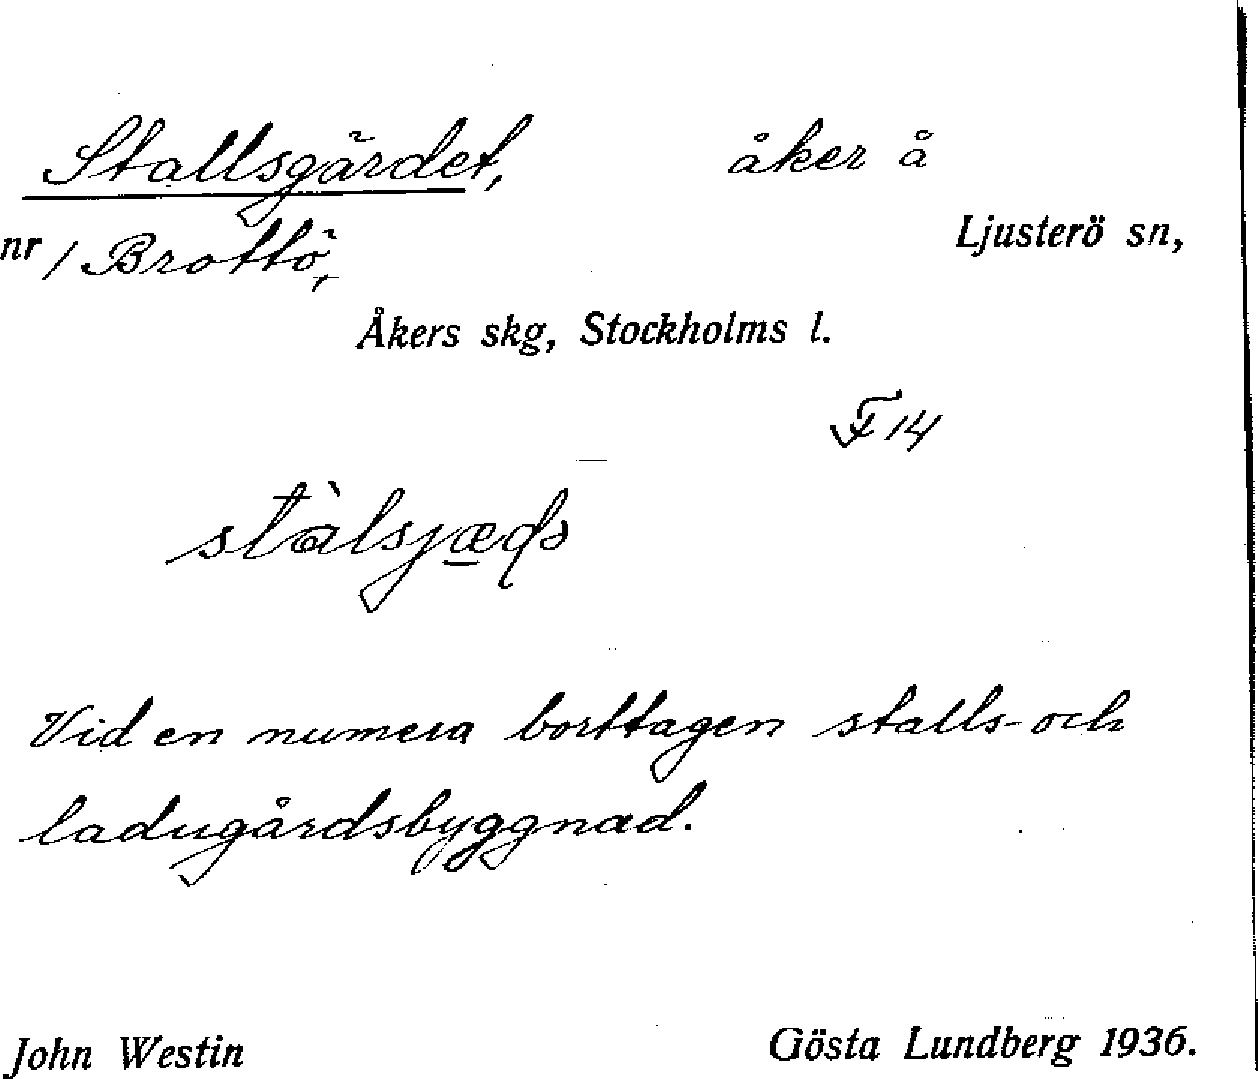 Stallsgärdet, åker å
Ljusterö sn,
nr 1 Brottö,
Åkers skg, Stockholms l.
F 14
Vid en numera borttagen stalls- och
ladugårdsbyggnad.
John Westin Gösta Lundberg 1936.